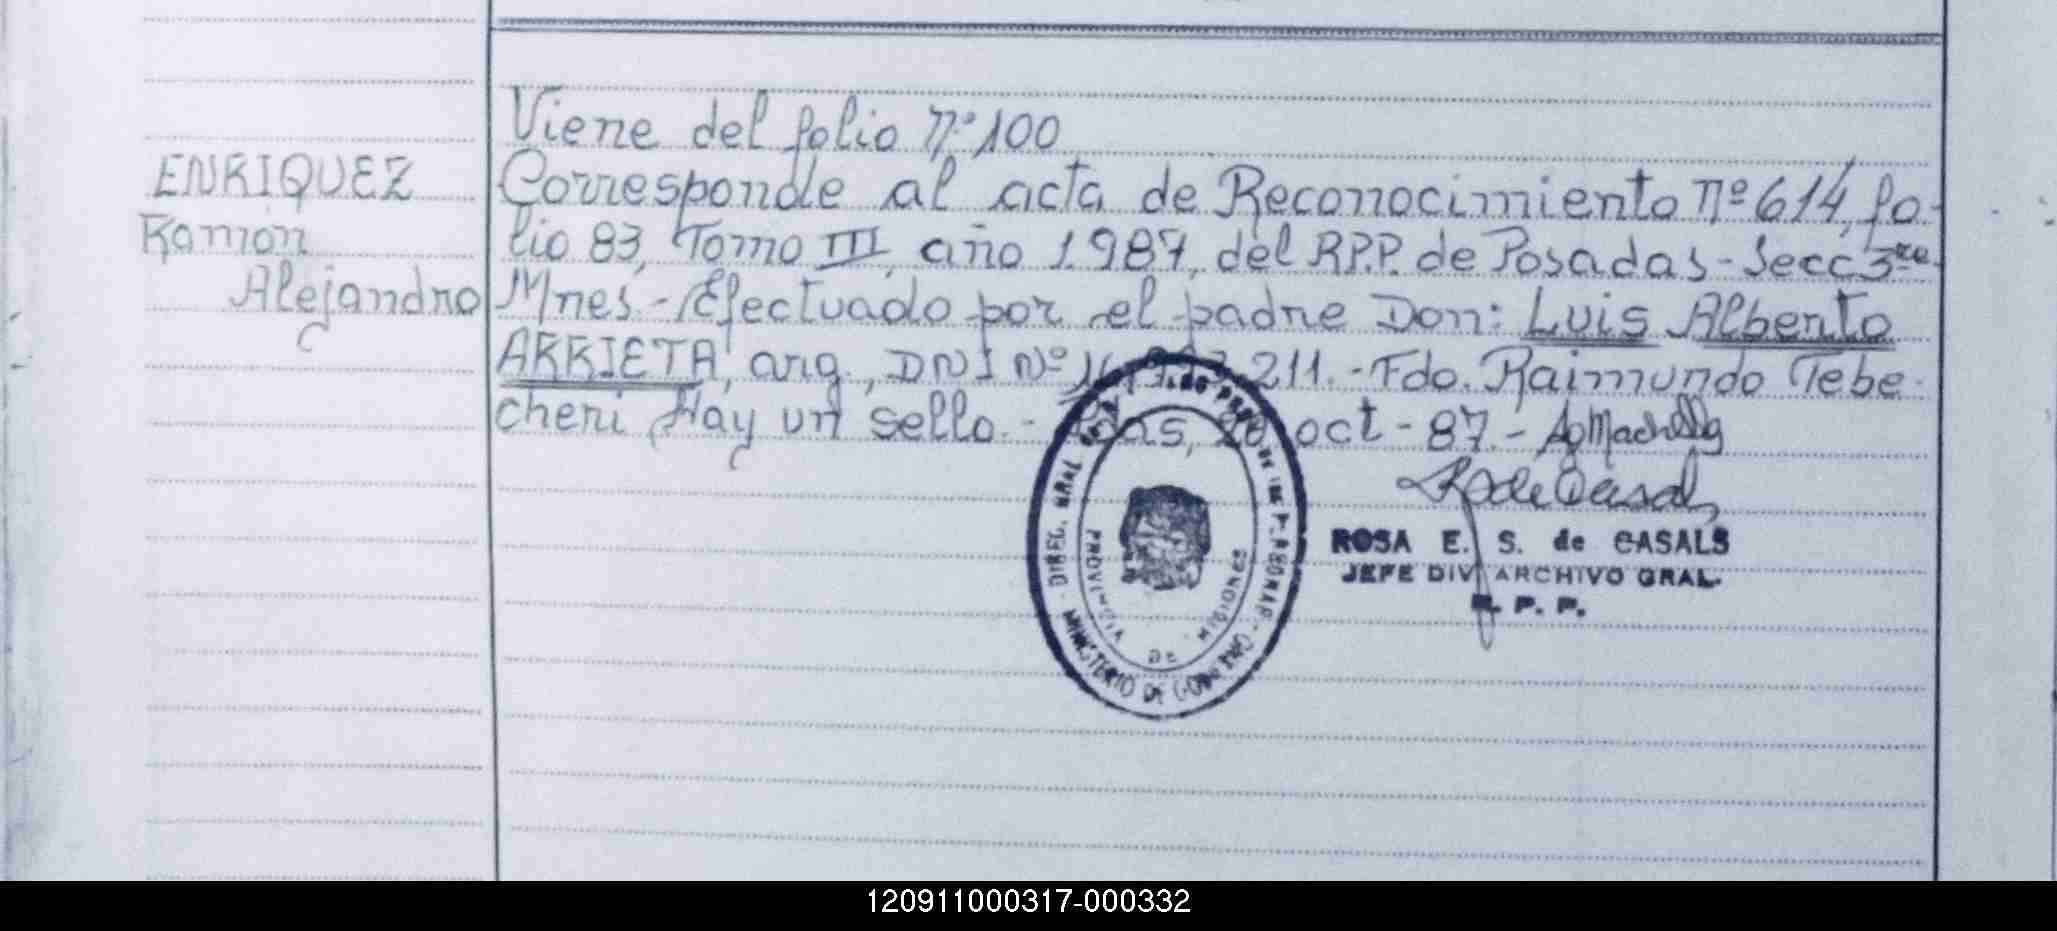 Viene del folio Nº 100
ENRIQUEZ
Ramón
Alejandro
Corresponde al acta de Reconocimiento Nº 614, fo-
lio 83, Tomo III, año 1987, del R.P.P. de Posadas - Secc 3ra
Mnes.- Efectuado por el padre Don: Luis Alberto
ARRIETA, arg., DNI Nº 211.- Fdo. Raimundo Tebe-
cheri Hay un sello.- Pdas, oct - 87.-
ROSA E. S. de CASALS
JEFE DIV ARCHIVO GRAL.
R. P. P.
DIREC. GRAL DE
MINISTERIO DE GOBIERNO
PROVINCIA DE MISIONES
120911000317-000332